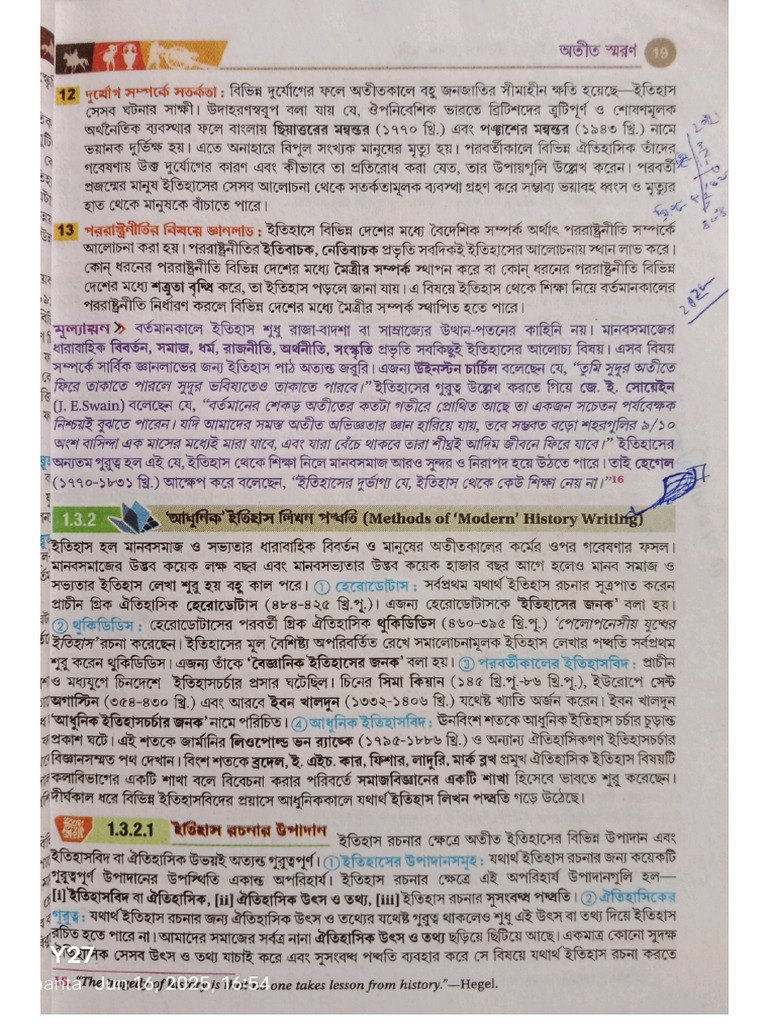 অতীত স্মরণ 19
12 দুর্যোগ সম্পর্কে সতর্কতা : বিভিন্ন দুর্যোগের ফলে অতীতকালে বহু জনজাতির সীমাহীন ক্ষতি হয়েছে—ইতিহাস
সেসব ঘটনার সাক্ষী। উদাহরণস্বরূপ বলা যায় যে, ঔপনিবেশিক ভারতে ব্রিটিশদের ত্রুটিপূর্ণ ও শোষণমূলক
অর্থনৈতিক ব্যবস্থার ফলে বাংলায় ছিয়াত্তরের মন্বন্তর (১৭৭০ খ্রি.) এবং পঞ্চাশের মন্বন্তর (১৯৪৩ খ্রি.) নামে
ভয়ানক দুর্ভিক্ষ হয়। এতে অনাহারে বিপুল সংখ্যক মানুষের মৃত্যু হয়। পরবর্তীকালে বিভিন্ন ঐতিহাসিক তাঁদের
গবেষণায় উক্ত দুর্যোগের কারণ এবং কীভাবে তা প্রতিরোধ করা যেত, তার উপায়গুলি উল্লেখ করেন। পরবর্তী
প্রজন্মের মানুষ ইতিহাসের সেসব আলোচনা থেকে সতর্কতামূলক ব্যবস্থা গ্রহণ করে সম্ভাব্য ভয়াবহ ধ্বংস ও মৃত্যুর
হাত থেকে মানুষকে বাঁচাতে পারে।
13 পররাষ্ট্রনীতির বিষয়ে জ্ঞানলাভ : ইতিহাসে বিভিন্ন দেশের মধ্যে বৈদেশিক সম্পর্ক অর্থাৎ পররাষ্ট্রনীতি সম্পর্কে
আলোচনা করা হয়। পররাষ্ট্রনীতির ইতিবাচক, নেতিবাচক প্রভৃতি সবদিকই ইতিহাসের আলোচনায় স্থান লাভ করে।
কোন্ ধরনের পররাষ্ট্রনীতি বিভিন্ন দেশের মধ্যে মৈত্রীর সম্পর্ক স্থাপন করে বা কোন্ ধরনের পররাষ্ট্রনীতি বিভিন্ন
দেশের মধ্যে শত্রুতা বৃদ্ধি করে, তা ইতিহাস পড়লে জানা যায়। এ বিষয়ে ইতিহাস থেকে শিক্ষা নিয়ে বর্তমানকালের
পররাষ্ট্রনীতি নির্ধারণ করলে বিভিন্ন দেশের মধ্যে মৈত্রীর সম্পর্ক স্থাপিত হতে পারে।
মূল্যায়ন বর্তমানকালে ইতিহাস শুধু রাজা-বাদশা বা সাম্রাজ্যের উত্থান-পতনের কাহিনি নয়। মানবসমাজের
ধারাবাহিক বিবর্তন, সমাজ, ধর্ম, রাজনীতি, অর্থনীতি, সংস্কৃতি প্রভৃতি সবকিছুই ইতিহাসের আলোচ্য বিষয়। এসব বিষয়
সম্পর্কে সার্বিক জ্ঞানলাভের জন্য ইতিহাস পাঠ অত্যন্ত জরুরি। এজন্য উইনস্টন চার্চিল বলেছেন যে, “তুমি সুদূর অতীতে
ফিরে তাকাতে পারলে সুদূর ভবিষ্যতেও তাকাতে পারবে।” ইতিহাসের গুরুত্ব উল্লেখ করতে গিয়ে জে. ই. সোয়েইন
(J. E.Swain) বলেছেন যে, “বর্তমানের শেকড় অতীতের কতটা গভীরে প্রোথিত আছে তা একজন সচেতন পর্যবেক্ষক
নিশ্চয়ই বুঝতে পারেন। যদি আমাদের সমস্ত অতীত অভিজ্ঞতার জ্ঞান হারিয়ে যায়, তবে সম্ভবত বড়ো শহরগুলির ৯/১০
অংশ বাসিন্দা এক মাসের মধ্যেই মারা যাবে, এবং যারা বেঁচে থাকবে তারা শীঘ্রই আদিম জীবনে ফিরে যাবে।” ইতিহাসের
অন্যতম গুরুত্ব হল এই যে, ইতিহাস থেকে শিক্ষা নিলে মানবসমাজ আরও সুন্দর ও নিরাপদ হয়ে উঠতে পারে। তাই হেগেল
(১৭৭০-১৮৩১ খ্রি.) আক্ষেপ করে বলেছেন, “ইতিহাসের দুর্ভাগ্য যে, ইতিহাস থেকে কেউ শিক্ষা নেয় না।”16
1.3.2 ‘আধুনিক’ ইতিহাস লিখন পদ্ধতি (Methods of ‘Modern’ History Writing)
ইতিহাস হল মানবসমাজ ও সভ্যতার ধারাবাহিক বিবর্তন ও মানুষের অতীতকালের কর্মের ওপর গবেষণার ফসল।
মানবসমাজের উদ্ভব কয়েক লক্ষ বছর এবং মানবসভ্যতার উদ্ভব কয়েক হাজার বছর আগে হলেও মানব সমাজ ও
সভ্যতার ইতিহাস লেখা শুরু হয় বহু কাল পরে। ① হেরোডোটাস : সর্বপ্রথম যথার্থ ইতিহাস রচনার সূত্রপাত করেন
প্রাচীন গ্রিক ঐতিহাসিক হেরোডোটাস (৪৮৪-৪২৫ খ্রি.পূ.)। এজন্য হেরোডোটাসকে ‘ইতিহাসের জনক’ বলা হয়।
② থুকিডিডিস : হেরোডোটাসের পরবর্তী গ্রিক ঐতিহাসিক থুকিডিডিস (৪৬০-৩৯৫ খ্রি.পূ.) ‘পেলোপনেসীয় যুদ্ধের
ইতিহাস’ রচনা করেছেন। ইতিহাসের মূল বৈশিষ্ট্য অপরিবর্তিত রেখে সমালোচনামূলক ইতিহাস লেখার পদ্ধতি সর্বপ্রথম
শুরু করেন থুকিডিডিস। এজন্য তাঁকে ‘বৈজ্ঞানিক ইতিহাসের জনক’ বলা হয়। ③ পরবর্তীকালের ইতিহাসবিদ : প্রাচীন
ও মধ্যযুগে চিনদেশে ইতিহাসচর্চার প্রসার ঘটেছিল। চিনের সিমা কিয়ান (১৪৫ খ্রি.পূ.-৮৬ খ্রি.পূ.), ইউরোপে সেন্ট
অগাস্টিন (৩৫৪-৪৩০ খ্রি.) এবং আরবে ইবন খালদুন (১৩৩২-১৪০৬ খ্রি.) যথেষ্ট খ্যাতি অর্জন করেন। ইবন খালদুন
‘আধুনিক ইতিহাসচর্চার জনক’ নামে পরিচিত। ④ আধুনিক ইতিহাসবিদ : ঊনবিংশ শতকে আধুনিক ইতিহাস চর্চার চূড়ান্ত
প্রকাশ ঘটে। এই শতকে জার্মানির লিওপোল্ড ভন র‍্যাঙ্কে (১৭৯৫-১৮৮৬ খ্রি.) ও অন্যান্য ঐতিহাসিকগণ ইতিহাসচর্চার
বিজ্ঞানসম্মত পথ দেখান। বিংশ শতকে ব্রদেল, ই. এইচ. কার, ফিশার, লাদুরি, মার্ক ব্লখ প্রমুখ ঐতিহাসিক ইতিহাস বিষয়টি
কলাবিভাগের একটি শাখা বলে বিবেচনা করার পরিবর্তে সমাজবিজ্ঞানের একটি শাখা হিসেবে ভাবতে শুরু করেছেন।
দীর্ঘকাল ধরে বিভিন্ন ইতিহাসবিদের প্রয়াসে আধুনিককালে যথার্থ ইতিহাস লিখন পদ্ধতি গড়ে উঠেছে।
1.3.2.1 ইতিহাস রচনার উপাদান ইতিহাস রচনার ক্ষেত্রে অতীত ইতিহাসের বিভিন্ন উপাদান এবং
ইতিহাসবিদ বা ঐতিহাসিক উভয়ই অত্যন্ত গুরুত্বপূর্ণ। ① ইতিহাসের উপাদানসমূহ : যথার্থ ইতিহাস রচনার জন্য কয়েকটি
গুরুত্বপূর্ণ উপাদানের উপস্থিতি একান্ত অপরিহার্য। ইতিহাস রচনার ক্ষেত্রে এই অপরিহার্য উপাদানগুলি হল—
[i] ইতিহাসবিদ বা ঐতিহাসিক, [ii] ঐতিহাসিক উৎস ও তথ্য, [iii] ইতিহাস রচনার সুসংবদ্ধ পদ্ধতি। ② ঐতিহাসিকের
গুরুত্ব : যথার্থ ইতিহাস রচনার জন্য ঐতিহাসিক উৎস ও তথ্যের যথেষ্ট গুরুত্ব থাকলেও শুধু এই উৎস বা তথ্য দিয়ে ইতিহাস
রচিত হতে পারে না। আমাদের সমাজের সর্বত্র নানা ঐতিহাসিক উৎস ও তথ্য ছড়িয়ে ছিটিয়ে আছে। একমাত্র কোনো সুদক্ষ
ঐতিহাসিক সেসব উৎস ও তথ্য যাচাই করে এবং সুসংবদ্ধ পদ্ধতি ব্যবহার করে সে বিষয়ে যথার্থ ইতিহাস রচনা করতে
Y27
Jun 16, 2025, 16:54
16. “The tragedy of history is that no one takes lesson from history.”—Hegel.